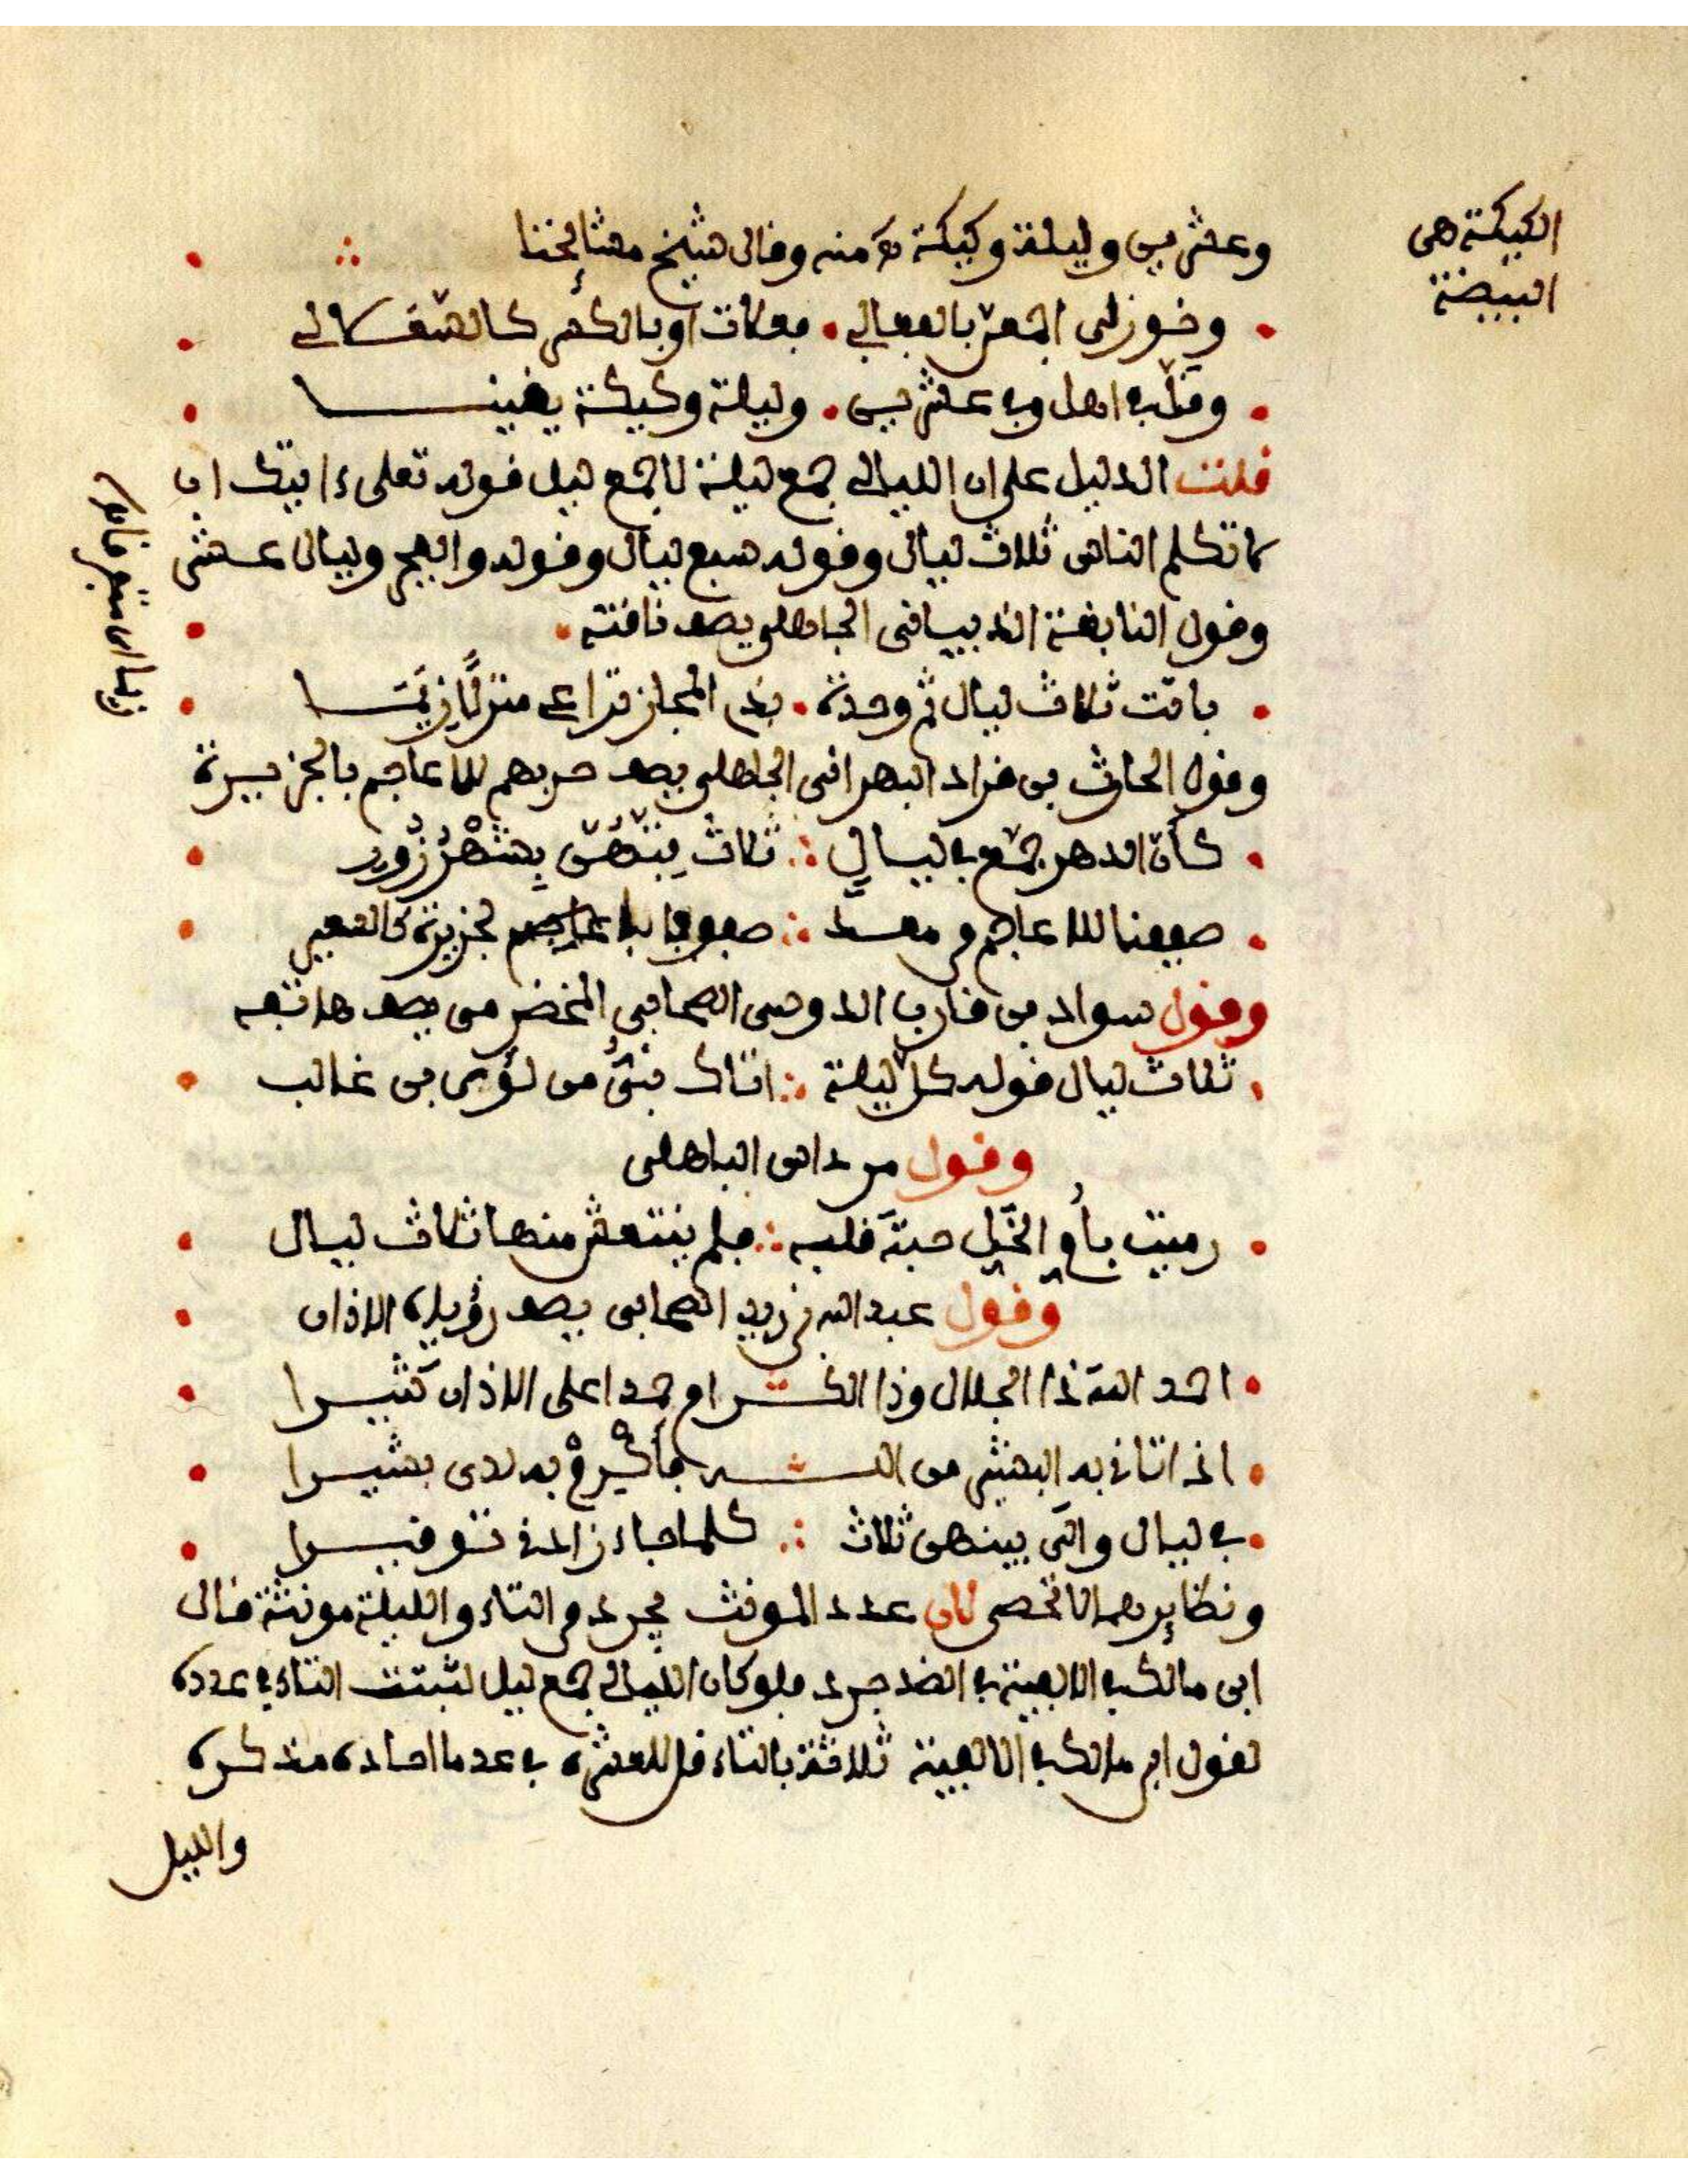 الكيكة هى
البيضة
وعشرين وليلة وكيكة منه وقال شيخ مشائخنا
وخوزلى اجمعن بالفعالى معلات او بالكسر كالسعلالى
وقل به اهل وفي عشرين وليلة وكيكة يفينا
قلت الدليل على ان الليالى جمع ليلة لا جمع ليل قوله تعلى ءايتك ان
لا تكلم الناس ثلاث ليال وقوله سبع ليال وقوله والفجر وليال عشر
وقول النابغة الذبيانى الجاهلى يصف ناقته
باتت ثلاث ليال ثم وحدة بذى المجاز تراعى منزلا زيما
وقول الحارث بن قراد البهرانى الجاهلى يصف حربهم للاعاجم بالجزيرة
كأن الدهر جمع في ليال ثلاث بتهن بشهر زور
صففنا للاعاجم من معد صفوفا بالجزيرة كالسعير
وقول سواد بن قارب الدوسى الصحابي المخضرمى يصف هاتفه
ثلاث ليال قوله كل ليلة اتاك نبى من لؤى بن غالب
وقول مرداس الباهلى
رميت بأم الخل حبة قلبه فلم ينتعش منها ثلاث ليال
وقول عبد الله بن زيد الصحابى يصف رؤياه الاذان
احمد الله ذا الجلال وذا الاكرام حمدا على الاذان كثيرا
اذ اتانى به البشير من الله فأكرم به لدى بشيرا
في ليال والى بينهن ثلاث كلما جاء زادنى توقيرا
ونظايرهما لا تحصى لان عدد المونث مجرد من التاء والليلة مونثة قال
ابن مالك في الالفية في الضد جرد فلو كان الليالى جمع ليل لثبتت التاء في عدده
لقول ابن مالك في الالفية ثلاثة بالتاء قل للعشره في عد ما احاده مذكره
والليل